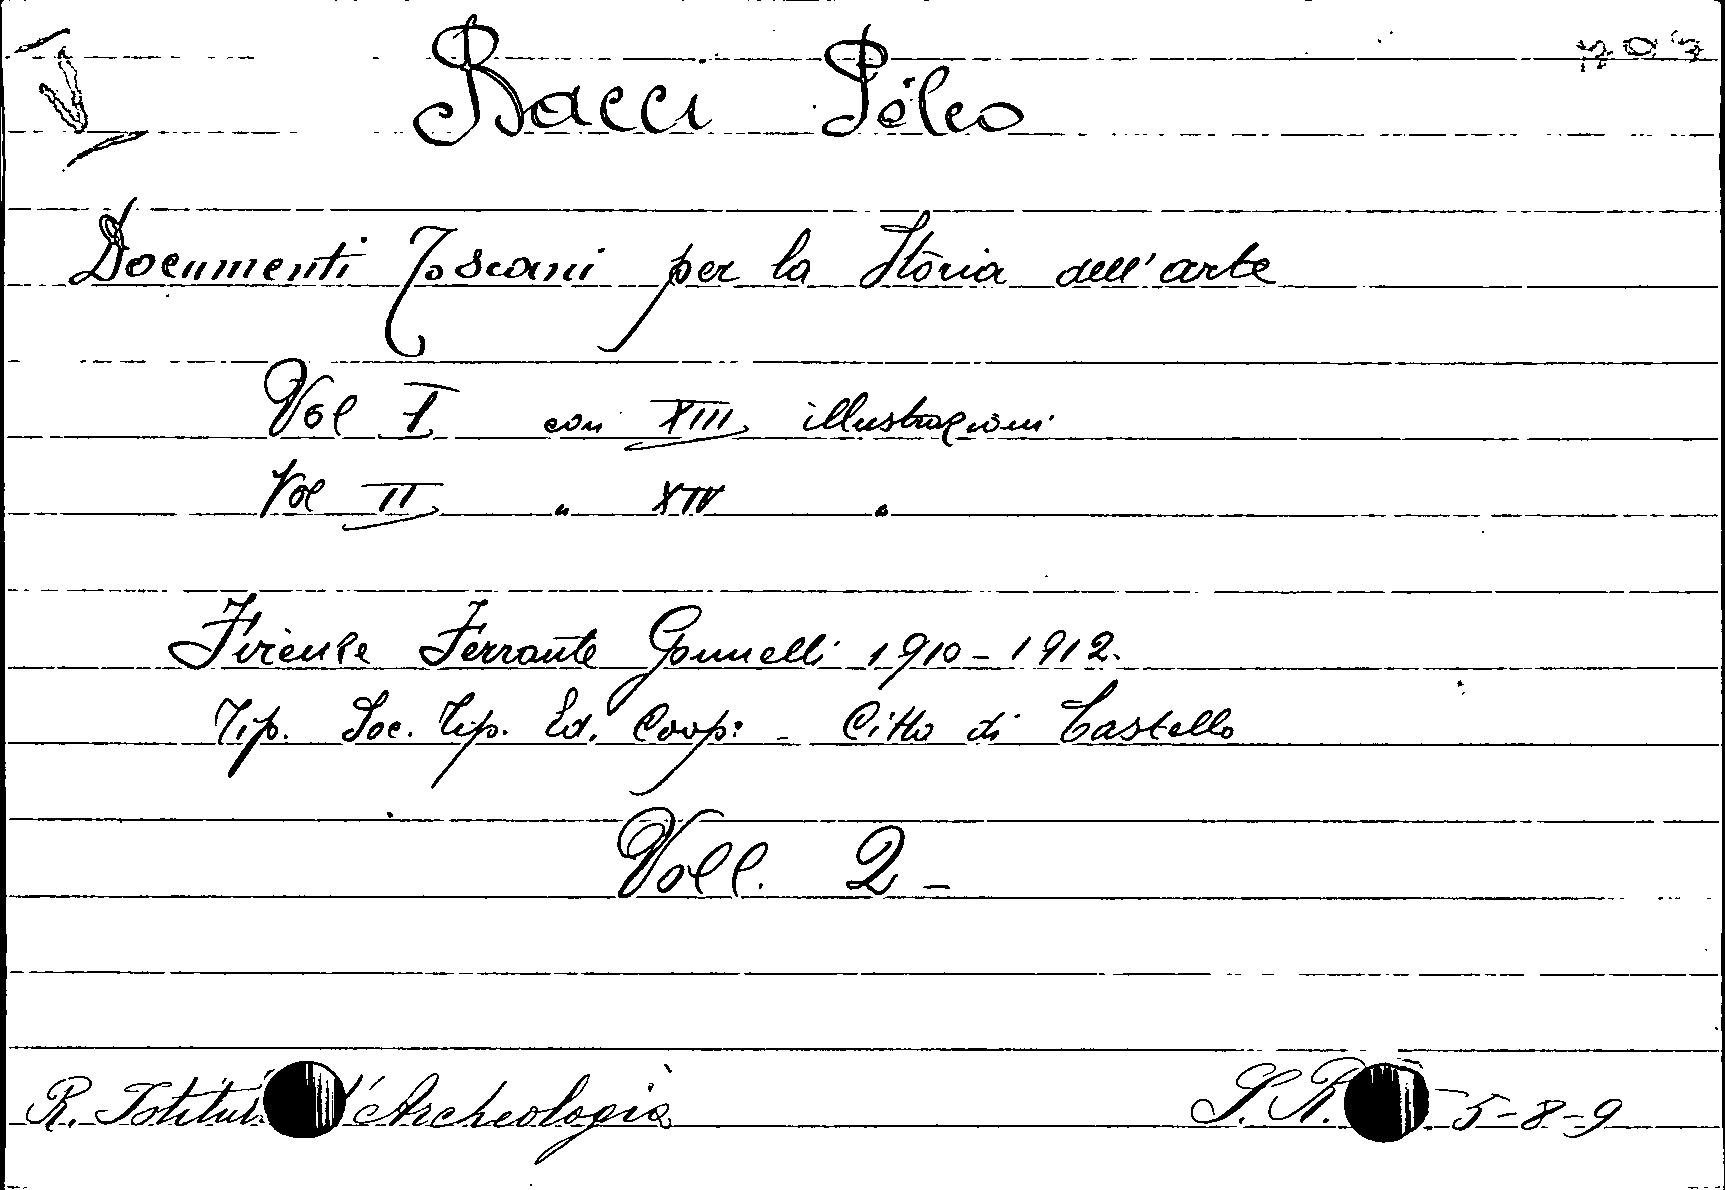 V
Bacci Pèleo
Documenti Toscani per la Storia dell'arte
Vol I con XIII illustrazioni
Vol II " XIV "
Firenze Ferrante Gonnelli 1910-1912.
Tip. Soc. Tip. Ed. Coop: - Citta di Castello
Voll. 2-
R. Istitut d'Archeologia S. R. 5-8-9